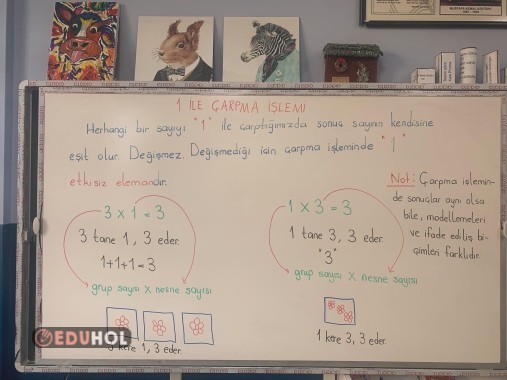 1 İLE ÇARPMA İŞLEMİ
Herhangi bir sayıyı "1" ile çarptığımızda sonuç sayının kendisine
eşit olur. Değişmez. Değişmediği için çarpma işleminde "1"
etkisiz elemandır.
3 x 1 = 3
3 tane 1, 3 eder.
1+1+1=3
grup sayısı x nesne sayısı
3 kere 1, 3 eder.
1 x 3 = 3
1 tane 3, 3 eder.
"3"
grup sayısı x nesne sayısı
1 kere 3, 3 eder.
Not: Çarpma işlemin-
de sonuçlar aynı olsa
bile, modellemeleri
ve ifade ediliş bi-
çimleri farklıdır.
EDUHOL